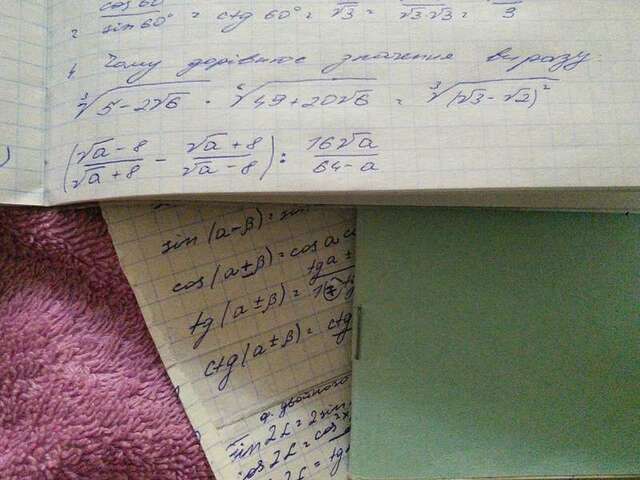 = cos 60° / sin 60° = ctg 60° = / √3 = / √3·√3 = / 3
Чому дорівнює значення виразу
³√(5-2√6) · ⁶√(49+20√6) = ³√((√3-√2)²
((√a-8)/(√a+8) - (√a+8)/(√a-8)) : 16√a/(64-a)
sin(α-β)= sin
cos(α±β)= cos α co
tg(α±β)= tg α ± / 1∓tg
ctg(α±β)= ctg
ф. двойного
sin 2α = 2 sin
cos 2α = cos²
2α = tg